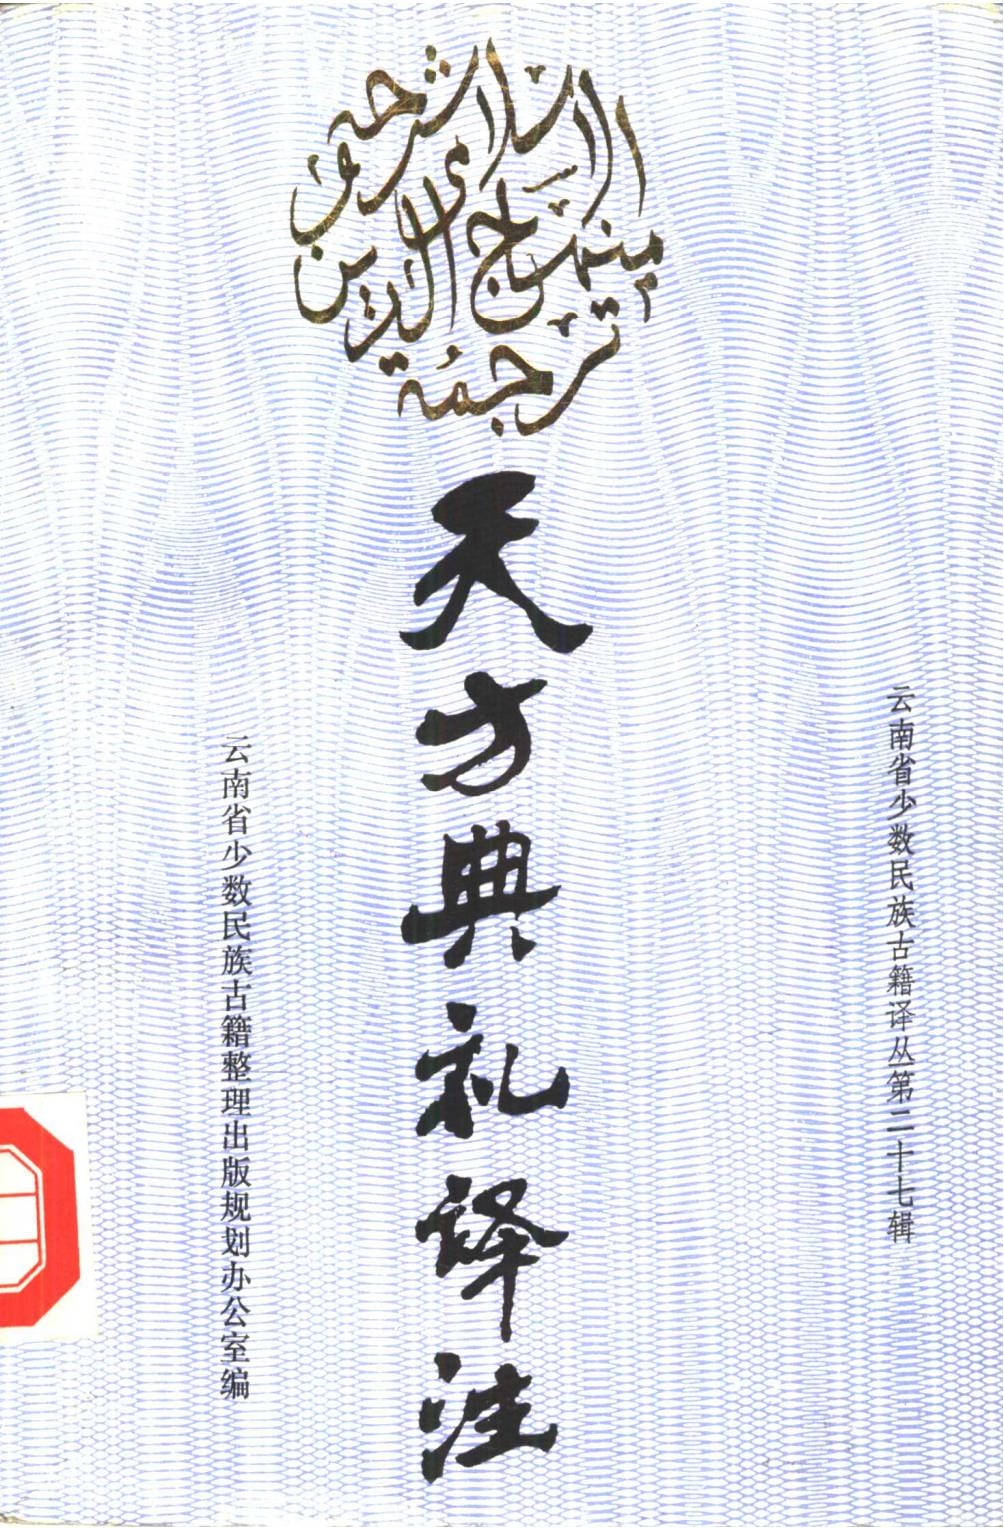 ترجمة
منهاج الدين
天方典礼译注
云南省少数民族古籍译丛第二十七辑
云南省少数民族古籍整理出版规划办公室编